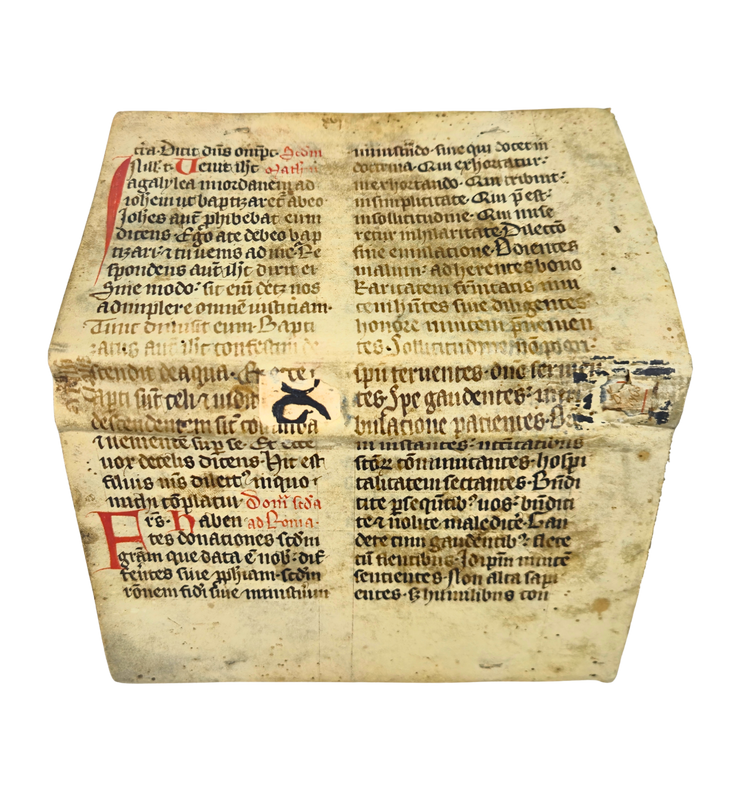 cta·Dicit dñs om̄pc· Scdm
In ill' t· Venit ihc math'm
agalylea iniordanem ad
ioh'em ut baptizaret̄ abeo·
Joh'es aut̄ ph̄ibebat eum
dicens· Ego ate debeo bap
tizari· ⁊ tu uenis ad me· Re
spondens aut̄ ih̄c dixit ei·
Sine modo· sic eni decꝫ nos
adimplere omnē iusticiam·
Tunc dimisit eum· Bapti
zatus aut̄ ih̄c confestim
ascendit deaqua· Et ecce
apti sūt celi ⁊ uidit
descendentem sic̄ columba
⁊ uenientē sup̄ se· Et ecce
uox decelis dicens· Hic est
filius m̄s dilect' inquo
michi cōplacui· Dom̄ scd'a
Frs· Haben ad Roma·
tes donationes scd'm
grām que data ē nob'· diff
erentes siue pph̄iam· scd'm
rōnem fidi siue ministeriū
ministn̄do· siue qui docet in
doctrina· Qui exhortatur·
inexhortando· Qui tribuit·
insimplicitate· Qui p̄est·
insollicitudine· Qui mise
retur inhilaritate· Dilectō
sine emulatione· Odientes
malum· adherentes bono
Karitatem fr̄nitatis inui
cem h̄ntes siue diligentes
honore inuicem p̄uenien
tes· Sollicitudine non pigri·
sp̄u feruentes· dn̄o seruien
tes· Spe gaudentes· in tri
bulatione patientes· Or
ni instantes· necessitatibus
sc̄oꝝ cōmunicantes· hospi
talitatem sectantes· Bn̄di
cite p̄sequētib' uos· bn̄dici
te ⁊ nolite maledicē· Gau
dere cum gaudentib'· flere
cū flentibus· Idip̄m inuicē
sentientes· Non alta sapi
entes· s; humilibus con